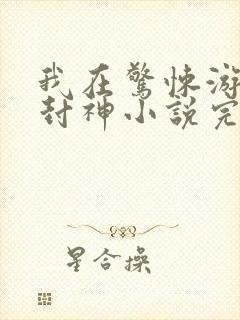 我在驚悚游
封神小說完
星合操